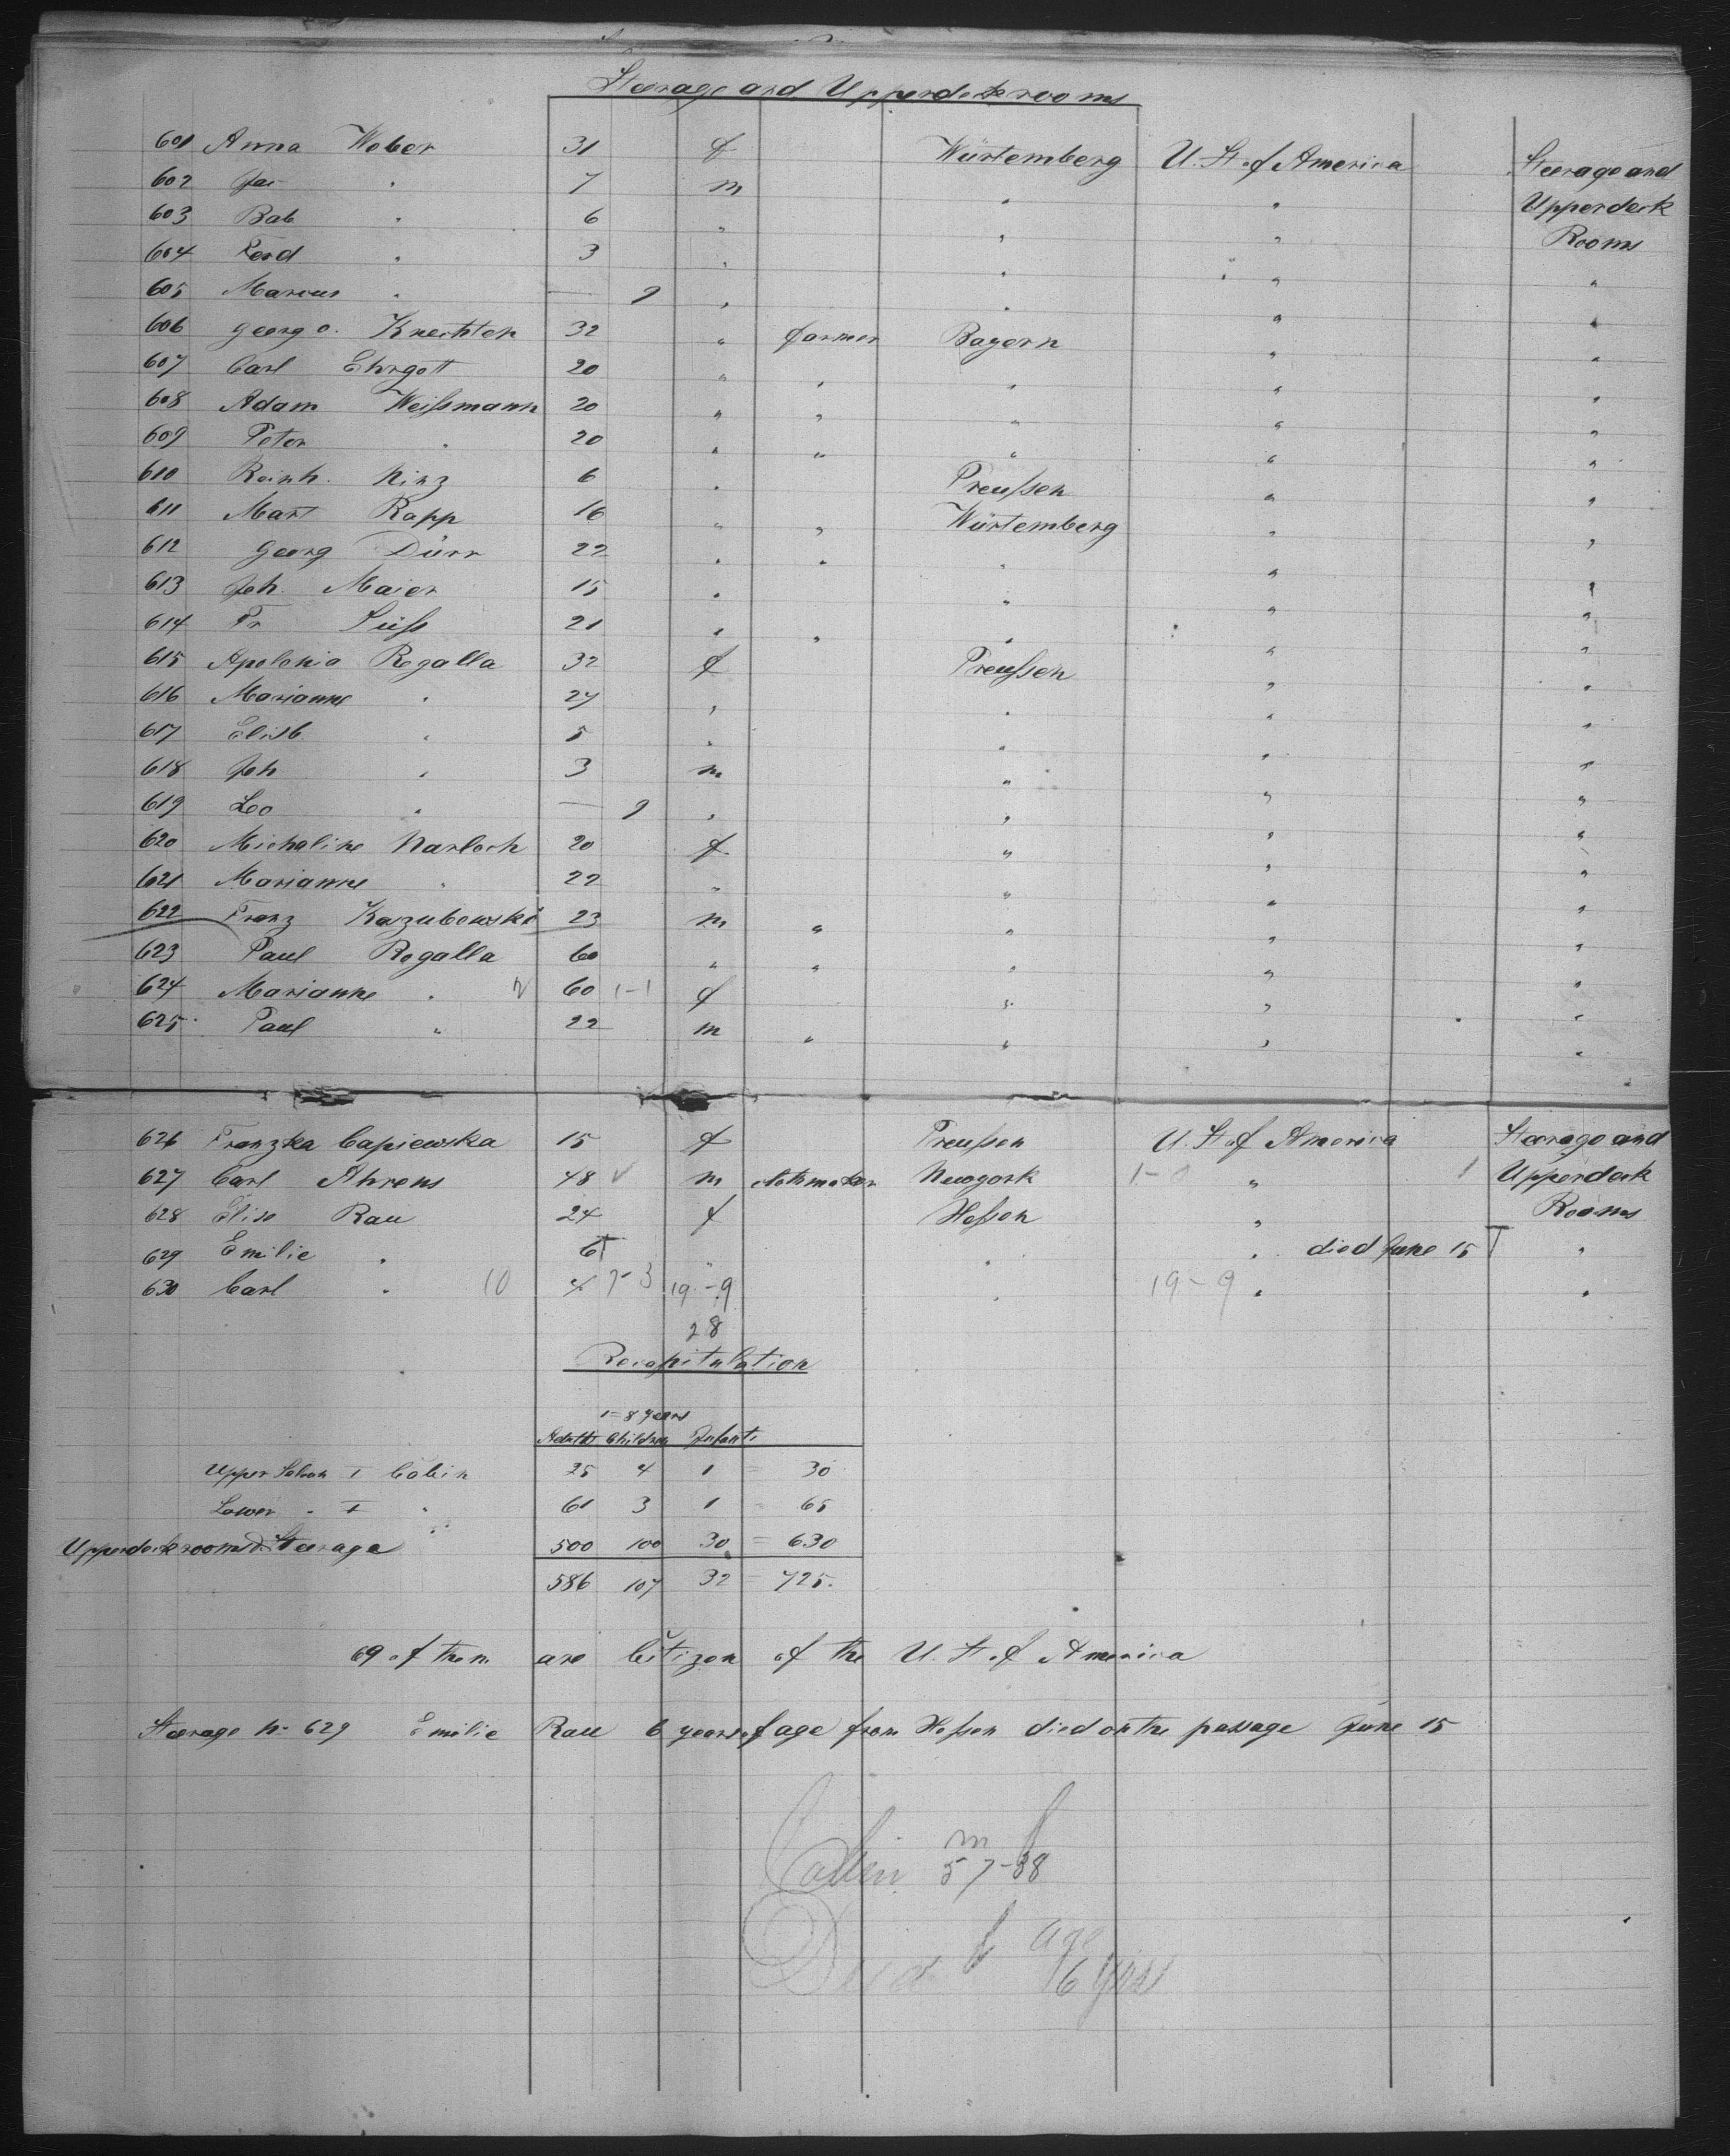 Steerage and Upperdeckrooms
601 Anna Weber 31 f Würtemberg U. St. of America Steerage and
602 Jac " 7 m " " Upperdeck
603 Bab " 6 " " " Rooms
604 Ferd " 3 " " " "
605 Marcus " — 9 " " " "
606 Georg Knechtel 32 " farmer Bayern " "
607 Carl Ehrgott 20 " " " " "
608 Adam Weißmann 20 " " " " "
609 Peter " 20 " " " " "
610 Reinh. Kinz 6 " Preußen " "
611 Mart Rapp 16 " " Würtemberg " "
612 Georg Dürr 22 " " " " "
613 Joh. Maier 15 " " " "
614 Fr Süß 21 " " " " "
615 Apolonia Rogalla 32 f Preußen " "
616 Marianne " 27 " " " "
617 Elisb " 5 " " " "
618 Joh " 3 m " " "
619 Leo " — 9 " " " "
620 Michaline Narloch 20 f " " "
621 Marianne " 22 " " " "
622 Franz Kazubowski 23 m " " " "
623 Paul Rogalla 60 " " " " "
624 Marianne " 60 1-1 f " " "
625 Paul " 22 m " " " "
626 Franzka Capiewska 15 f Preußen U. St. of America Steerage and
627 Carl Ahrens 48 m Newyork 1- " 1 Upperdeck
628 Elise Rau 24 f Heßen " Rooms
629 Emilie " 6 " " " died June 15 "
630 Carl " 10 4 7-3 19-9 " 19-9 " "
28
Recapitulation
1-8 years
Adults Children Infants
Upper Saloon I Cabin 25 4 1 = 30
Lower " I " 61 3 1 = 65
Upperdeckrooms & Steerage 500 100 30 = 630
586 107 32 = 725.
69 of them are Citizen of the U. St. of America
Steerage No 629 Emilie Rau 6 years of age from Heßen died on the passage June 15
m f
Cabin 57-38
Died f age
6 yrs